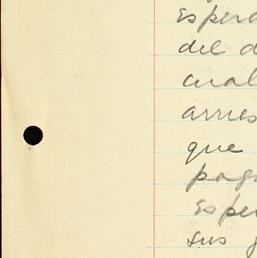 espera
del d
cual
arries
que
pag
espe
sus g